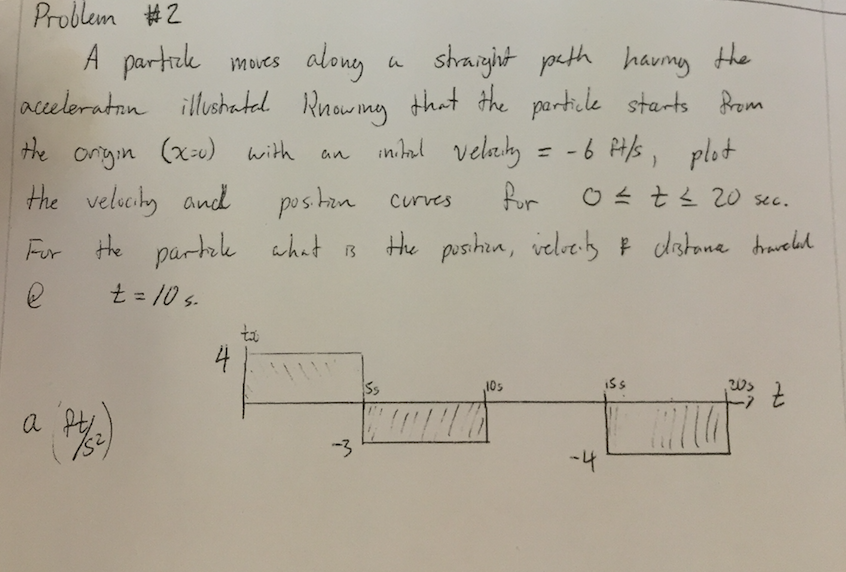 Problem #2
A particle moves along a straight path having the
acceleration illustrated Knowing that the particle starts from
the origin (x=0) with an initial velocity = -6 ft/s, plot
the velocity and position curves for 0 ≤ t ≤ 20 sec.
For the particle what is the position, velocity & distance traveled
@ t = 10 s.
4
5s 10s 15s 20s t
a (ft/s²)
-3
-4